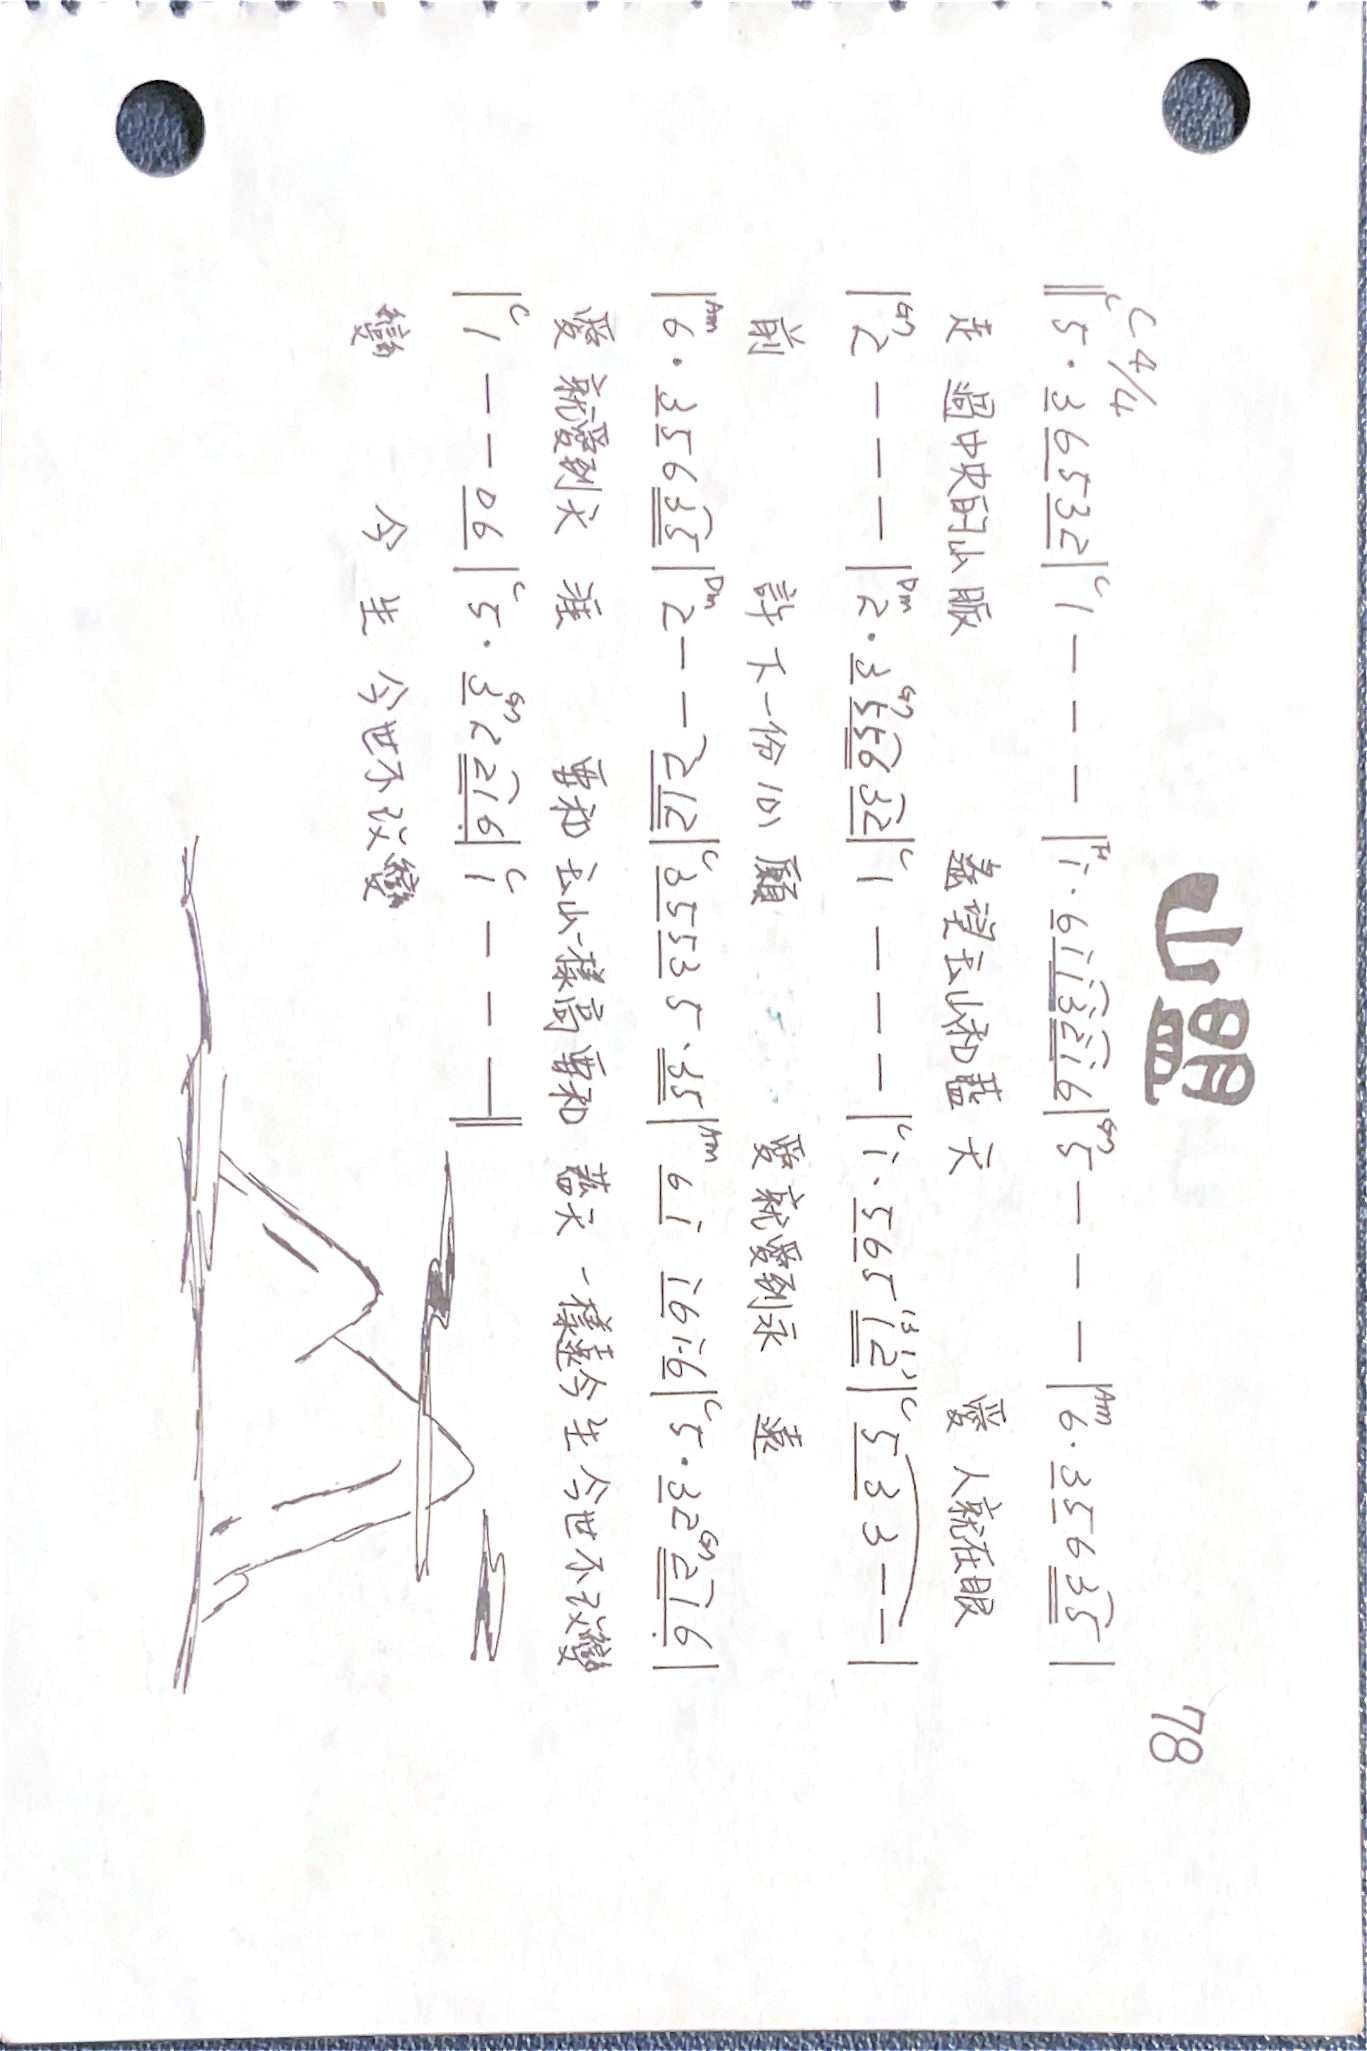 山盟
78
C 4/4
‖C 5 · 3 6 5 3 2 |C 1 — — — |F i · 6 i i 3̇ 2̇ i 6 |G7 5 — — — |Am 6 · 3 5 6 3 5 |
走過中央的山脈 遙望玉山和藍天 愛人就在眼
|G7 2 — — — |Dm 2 · 3 G7 5 5 6 3 2 |C 1 — — — |C i · 5 6 5 i 2̇ (3 1) |C 5 3 3 — — |
前 許下一份心願 愛就愛到永遠
|Am 6 · 3 5 6 3 5 |Dm 2 — — 2 1 2 |C 3 5 5 3 5 · 3 5 |Am 6 i i 6 i · 6 |C 5 · 3 2 G7 2 1 6̣ |
愛就愛到天涯 要和玉山一樣高要和藍天一樣遠今生今世不改變
|C 1 — — 0 6 |C 5 · 3 G7 2 2 1 6̣ |C 1 — — — ‖
變 今生今世不改變